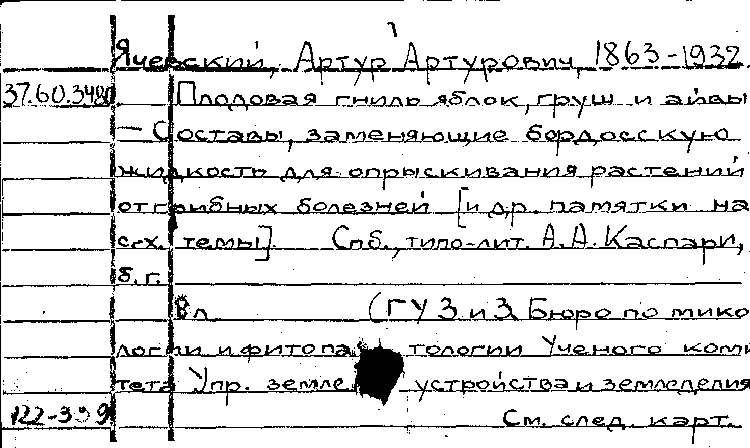 Ячевский, Артур Артурович, 1863-1932.
37.60.3480 Плодовая гниль яблок, груш и айвы
— Составы, заменяющие бордосскую
жидкость для опрыскивания растений
от грибных болезней [и др. памятки на
с-х. темы]. Спб., типо-лит. А.А. Каспари,
б.г.
8л (ГУЗ и З Бюро по мико
логии и фитопа тологии Ученого коми
тета Упр. земле устройства и земледелия
122-339 См. след. карт.